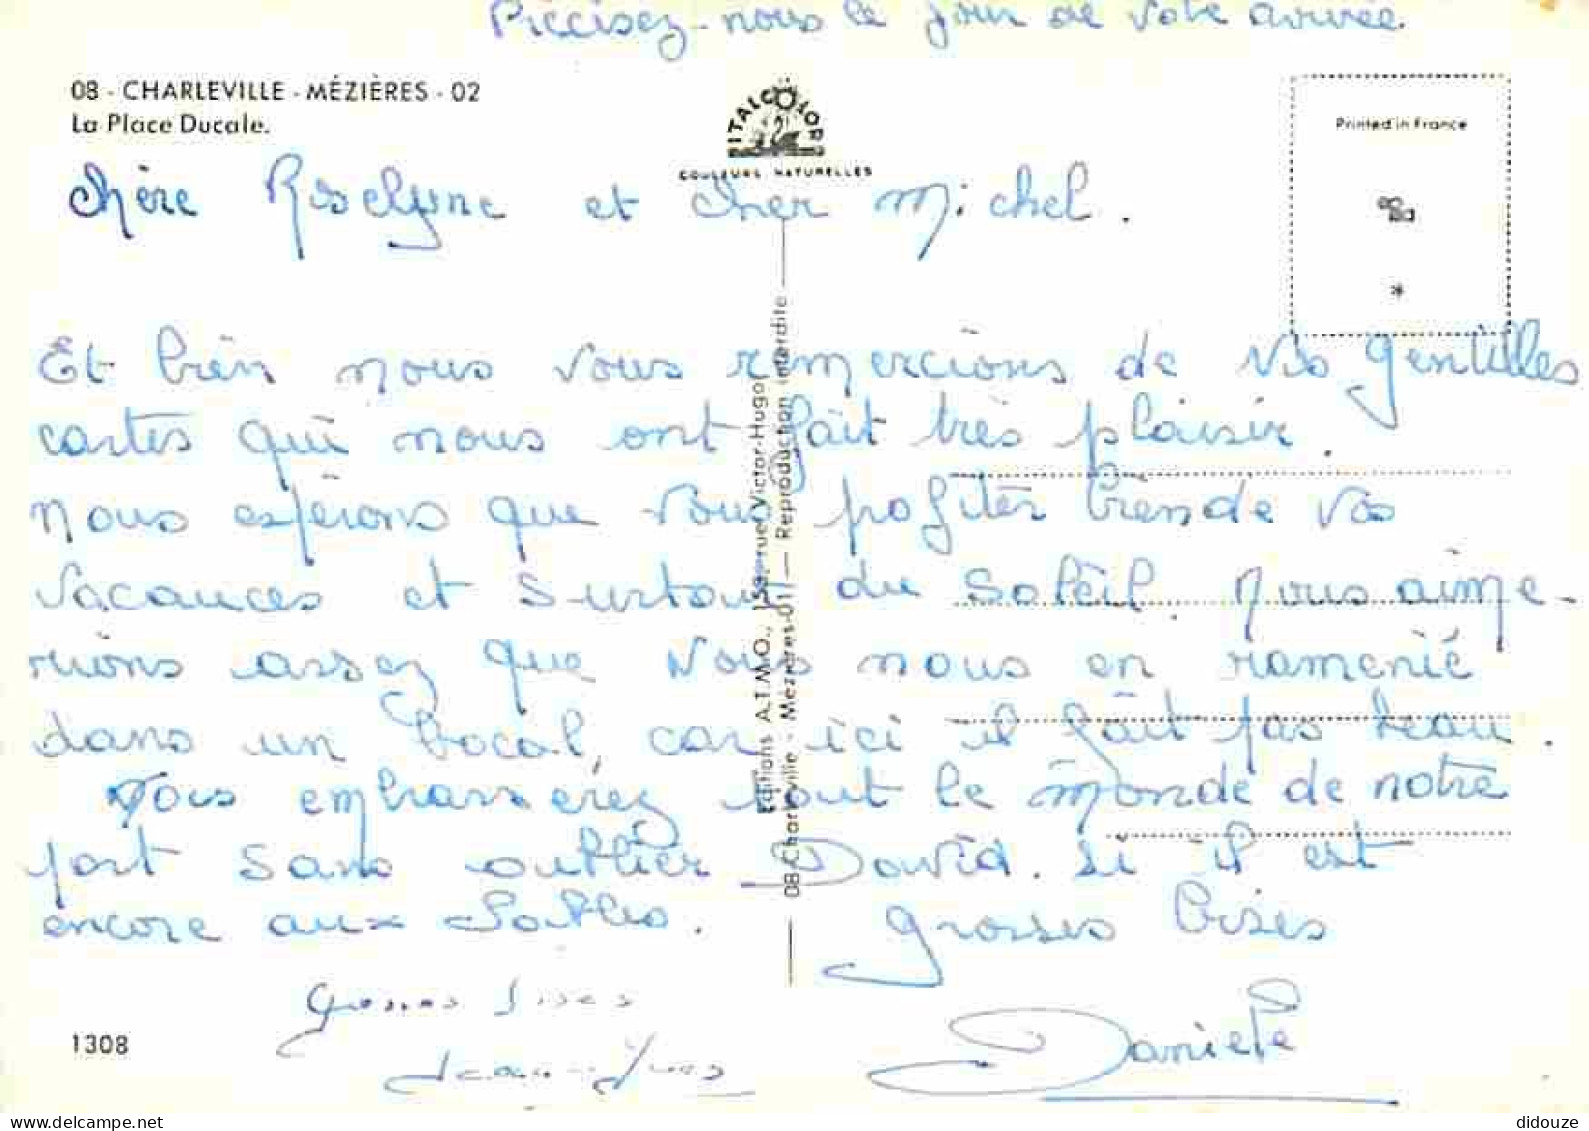 Précisez-nous le jour de votre arrivée.
08 - CHARLEVILLE - MÉZIÈRES - 02
La Place Ducale.
ITALCOLOR
COULEURS NATURELLES
Printed in France
*
chère Roselyne et cher Michel.
Et bien nous vous remercions de vos gentilles
cartes qui nous ont fait très plaisir.
Nous espérons que vous profiter bien de vos
vacances et surtout du soleil. Nous aime-
rions assez que vous nous en ramenié
dans un bocal, car ici il fait pas beau.
Vous embrasserez tout le monde de notre
part sans oublier David. si il est
encore aux Sables.
grosses bises
Grosses bises
Jean-Yves
Danièle
Editions A.T.M.O., 159, rue Victor-Hugo
08-Charleville - Mézières-01 — Reproduction interdite
1308
didouze